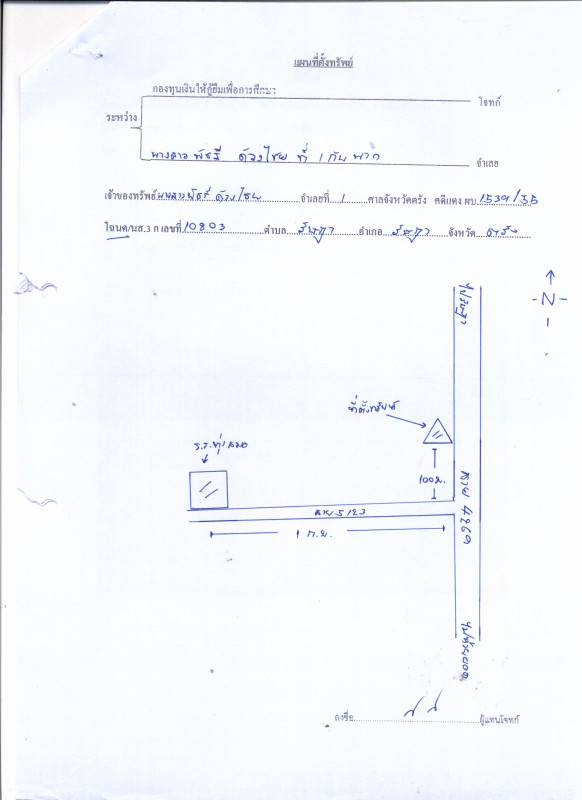 แผนที่ตั้งทรัพย์
กองทุนเงินให้กู้ยืมเพื่อการศึกษา
โจทก์
ระหว่าง
นางสาว พัชรี ด้วงไชย ที่ 1 กับพวก
จำเลย
เจ้าของทรัพย์ นางสาว พัชรี ด้วงไชย จำเลยที่ 1 ศาลจังหวัดตรัง คดีแดง ผบ. 1539/55
โฉนด/นส.3 ก เลขที่ 10803 ตำบล รัษฎา อำเภอ รัษฎา จังหวัด ตรัง
N
ไปรัษฎา
ที่ตั้งทรัพย์
ร.ร.ทุ่ง
100ม.
สาย 4269
สาย 5123
1 ก.ม.
ไปห้วยยอด
ลงชื่อ ผู้แทนโจทก์